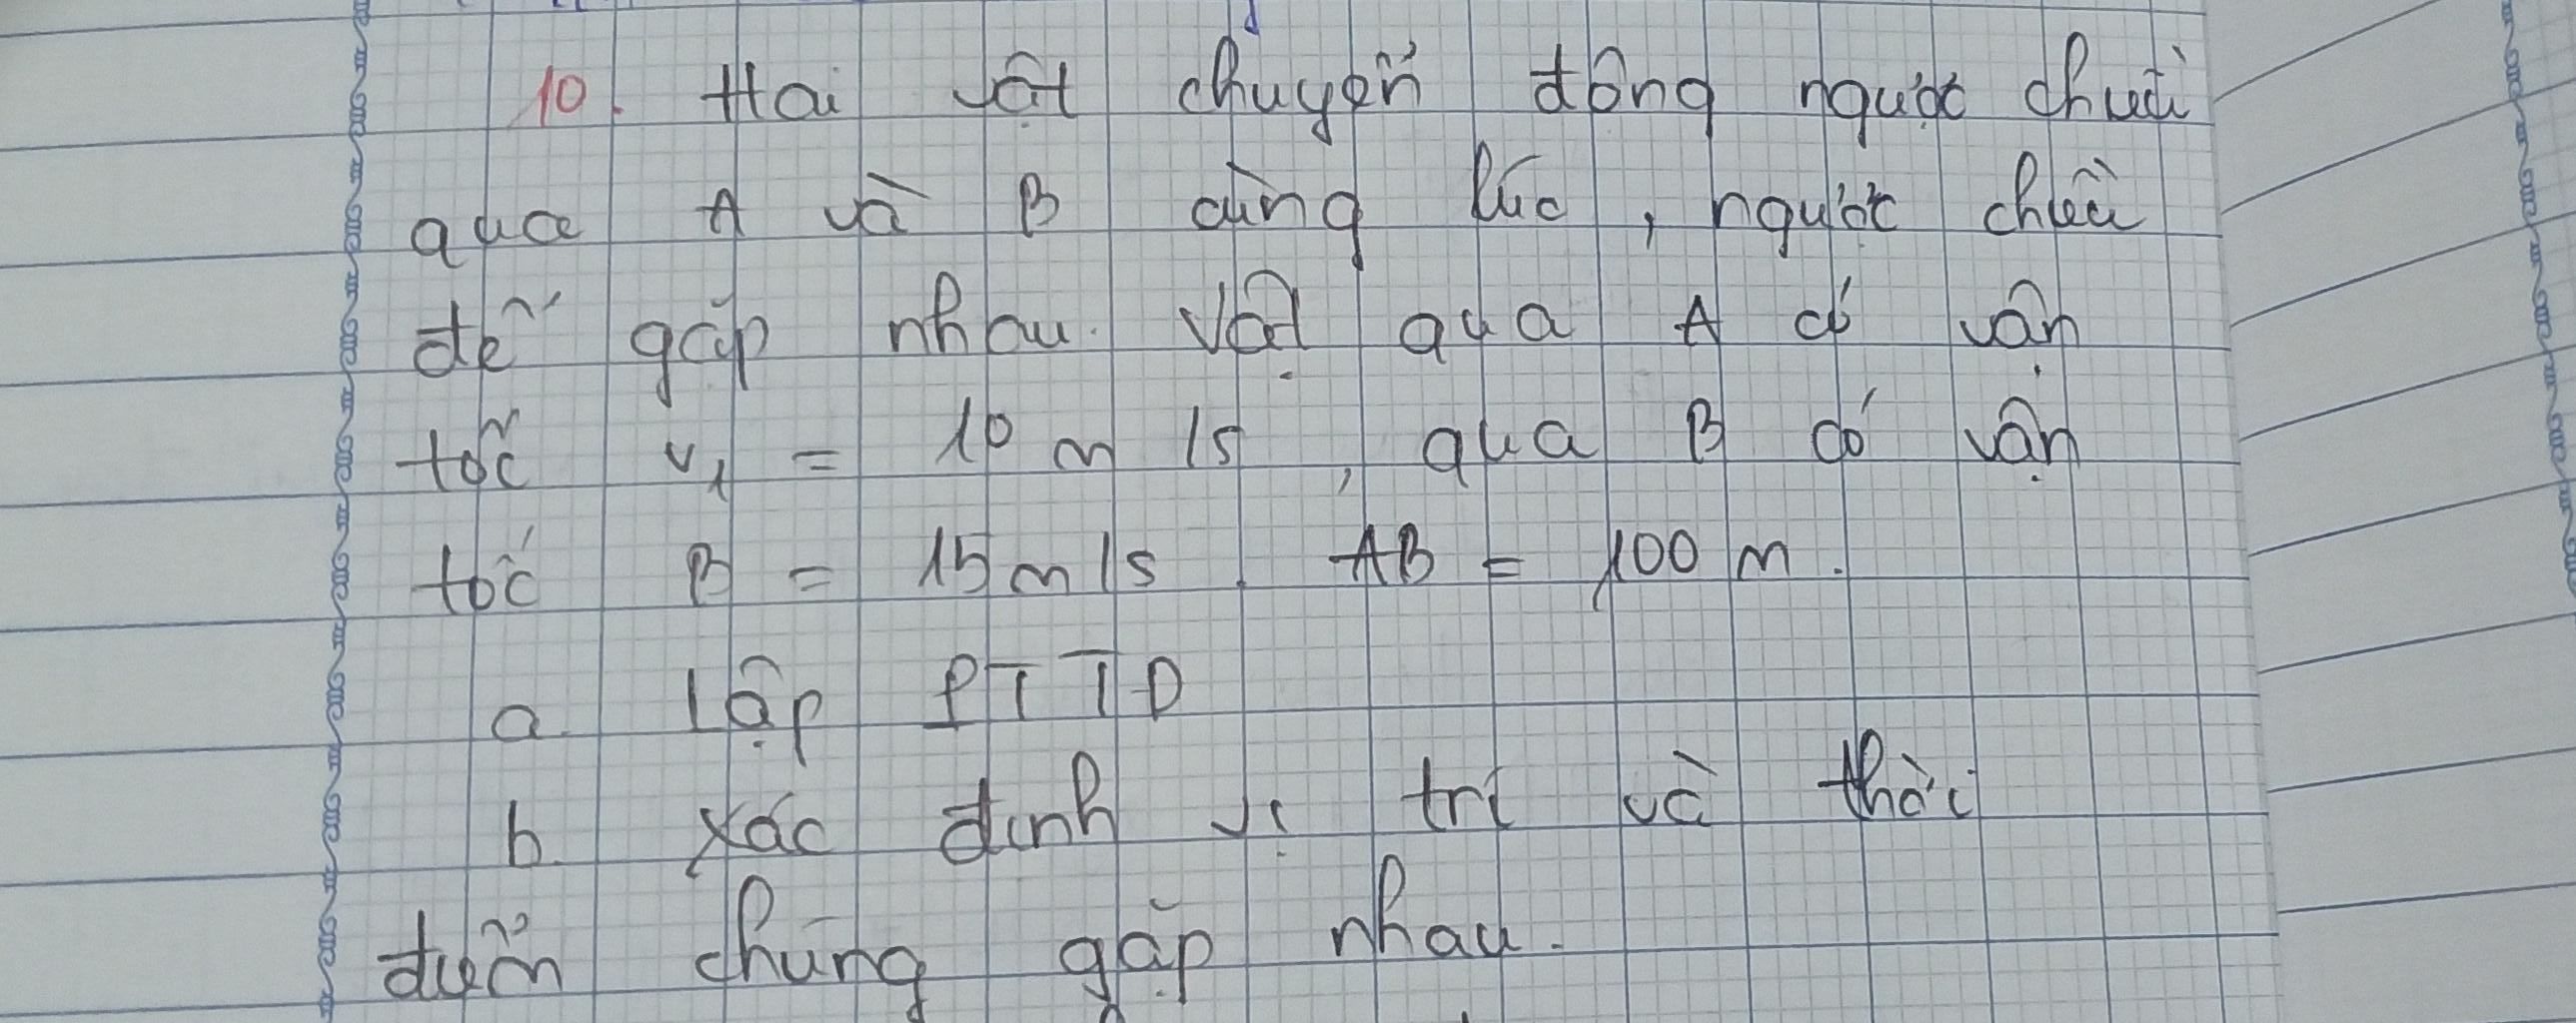 10. Hai vật chuyển động ngược chiều
qua A và B cùng lúc, ngược chiều
để gặp nhau. Vật qua A có vận
tốc v₁ = 10 m/s, qua B có vận
tốc B = 15 m/s. AB = 100 m.
a. Lập PTTD
b. Xác định vị trí và thời
điểm chúng gặp nhau.